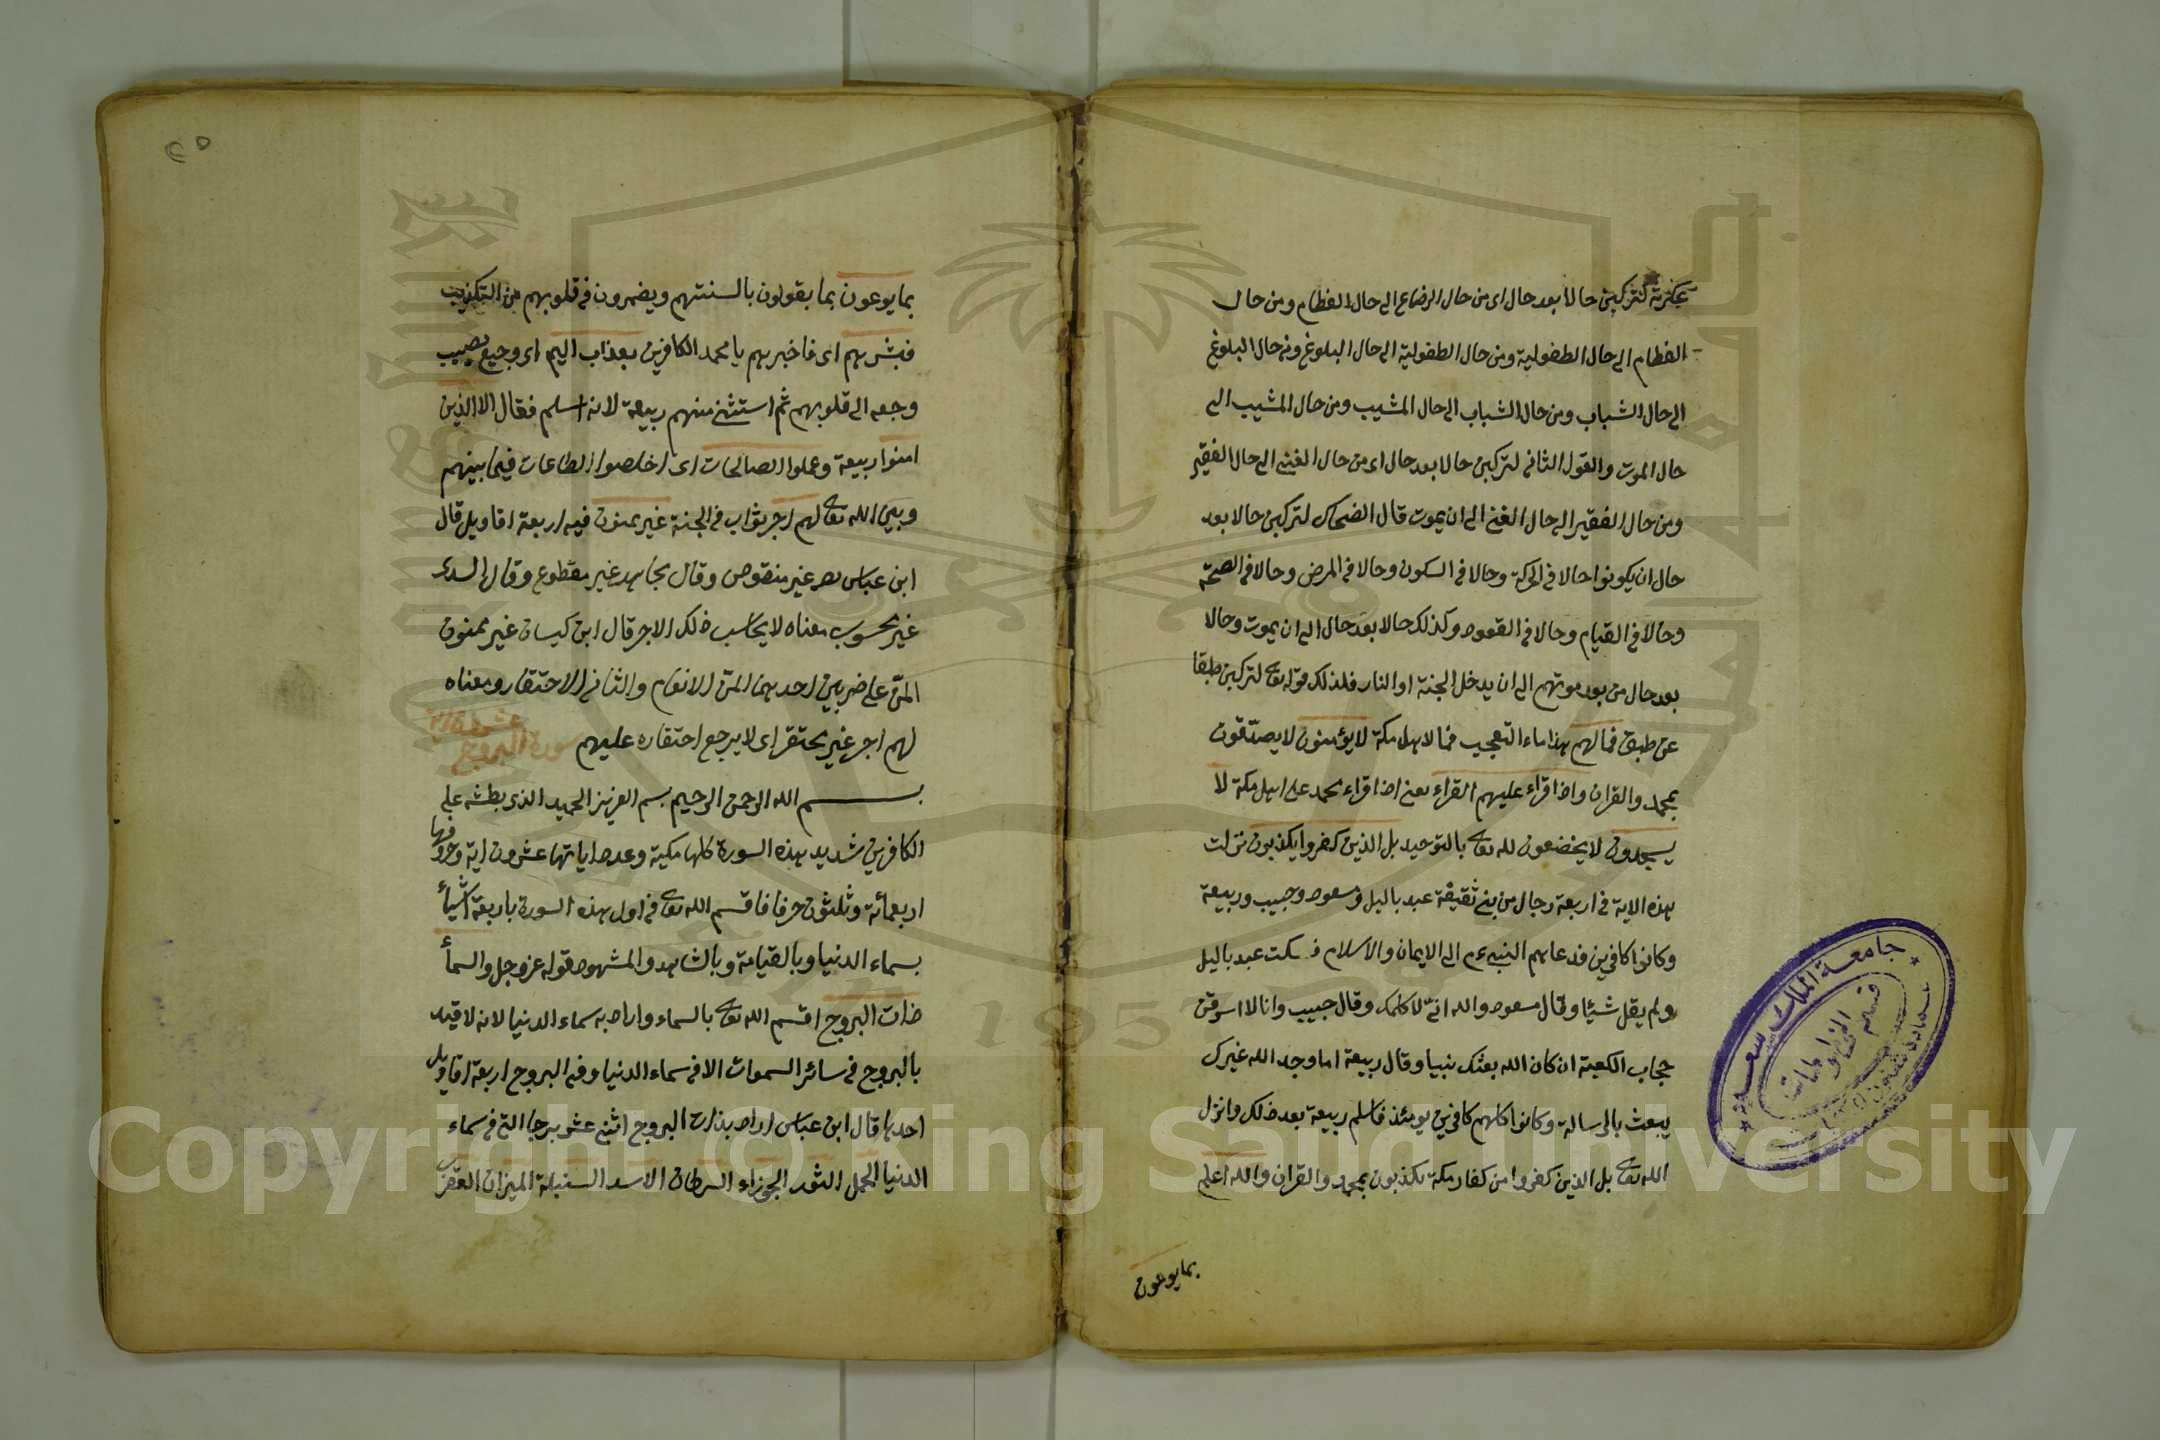 عكرمة لتركبن حالا بعد حال اى من حال الرضاع الى حال الفطام ومن حال
الفطام الى حال الطفولية ومن حال الطفولية الى حال البلوغ ومن حال البلوغ
الى حال الشباب ومن حال الشباب الى حال المشيب ومن حال المشيب الى
حال الموت والقول الثانى لتركبن حالا بعد حال اى من حال الغنى الى حال الفقير
ومن حال الفقير الى حال الغنى الى ان يموت قال الضحاك لتركبن حالا بعد
حال ان يكونوا حالا فى الحركة وحالا فى السكون وحالا فى المرض وحالا فى الصحة
وحالا فى القيام وحالا فى القعود وكذلك حالا بعد حال الى ان يموت وحالا
بعد حال من بعد موتهم الى ان يدخل الجنة او النار فلذلك قوله تعالى لتركبن طبقا
عن طبق فما لهم هذا ماء التعجيب فما لاهل مكة لا يؤمنون لا يصدقون
بمحمد والقران واذا قراء عليهم القراء يعنى اذا قراء محمد على اهل مكة لا
يسجدون لا يخضعون لله تعالى بالتوحيد بل الذين كفروا يكذبون نزلت
هذه الاية فى اربعة رجال من بنى ثقيفة عبد ياليل ومسعود وحبيب وربيعة
وكانوا كافرين فدعاهم النبى عم الى الايمان والاسلام فسكت عبد ياليل
ولم يقل شيئا وقال مسعود والله انى لا اكلمك وقال حبيب وانا لا اسرقن
حجاب الكعبة ان كان الله بعثك نبيا وقال ربيعة اما وجد الله غيرك
يبعث بالرسالة وكانوا كلهم كافرين يومئذ فاسلم ربيعة بعد ذلك وانزل
الله تعالى بل الذين كفروا من كفار مكة يكذبون بمحمد والقران والله اعلم
بما يوعون
جامعة الملك سعود
قسم المخطوطات
عمادة شئون المكتبات
٤٥
بما يوعون بما يقولون بالسنتهم ويضمرون فى قلوبهم من التكذيب
فبشرهم اى فاخبرهم يا محمد الكافرين بعذاب اليم اى وجيع يصيب
وجعه الى قلوبهم ثم استثنى منهم ربيعة لانه اسلم فقال الا الذين
امنوا ربيعة وعملوا الصالحات اى اخلصوا الطاعات فيما بينهم
وبين الله تعالى لهم اجر ثواب فى الجنة غير ممنون فيه اربعة اقاويل قال
ابن عباس غير منقوص وقال مجاهد غير مقطوع وقال السدى
غير محسوب معناه لا يحاسب ذلك الاجر قال ابن كيسان غير ممنون
المن على ضربين احدهما المن الانعام والثانى الاحتقار ومعناه
لهم اجر غير محتقر اى لا يرجع احتقاره عليهم سورة البروج
بسم الله الرحمن الرحيم بسم العزيز الحميد الذى بطشه على
الكافرين شديد هذه السورة كلها مكية وعدد اياتها عشرون اية وحروفها
اربعمائة وثلثون حرفا فاقسم الله تعالى فى اول هذه السورة باربعة اشيأ
بسماء الدنيا وبالقيامة وبالشاهد والمشهود قوله عز وجل والسمأ
ذات البروج اقسم الله تعالى بالسماء واراد به سماء الدنيا لانه لا قيد
بالبروج فى سائر السموات الا فى سماء الدنيا وفى البروج اربعة اقاويل
احدها قال ابن عباس اراد بذات البروج اثنى عشر برجا التى فى سماء
الدنيا الحمل الثور الجوزاء السرطان الاسد السنبلة الميزان العقرب
Copyright © King Saud University
1957